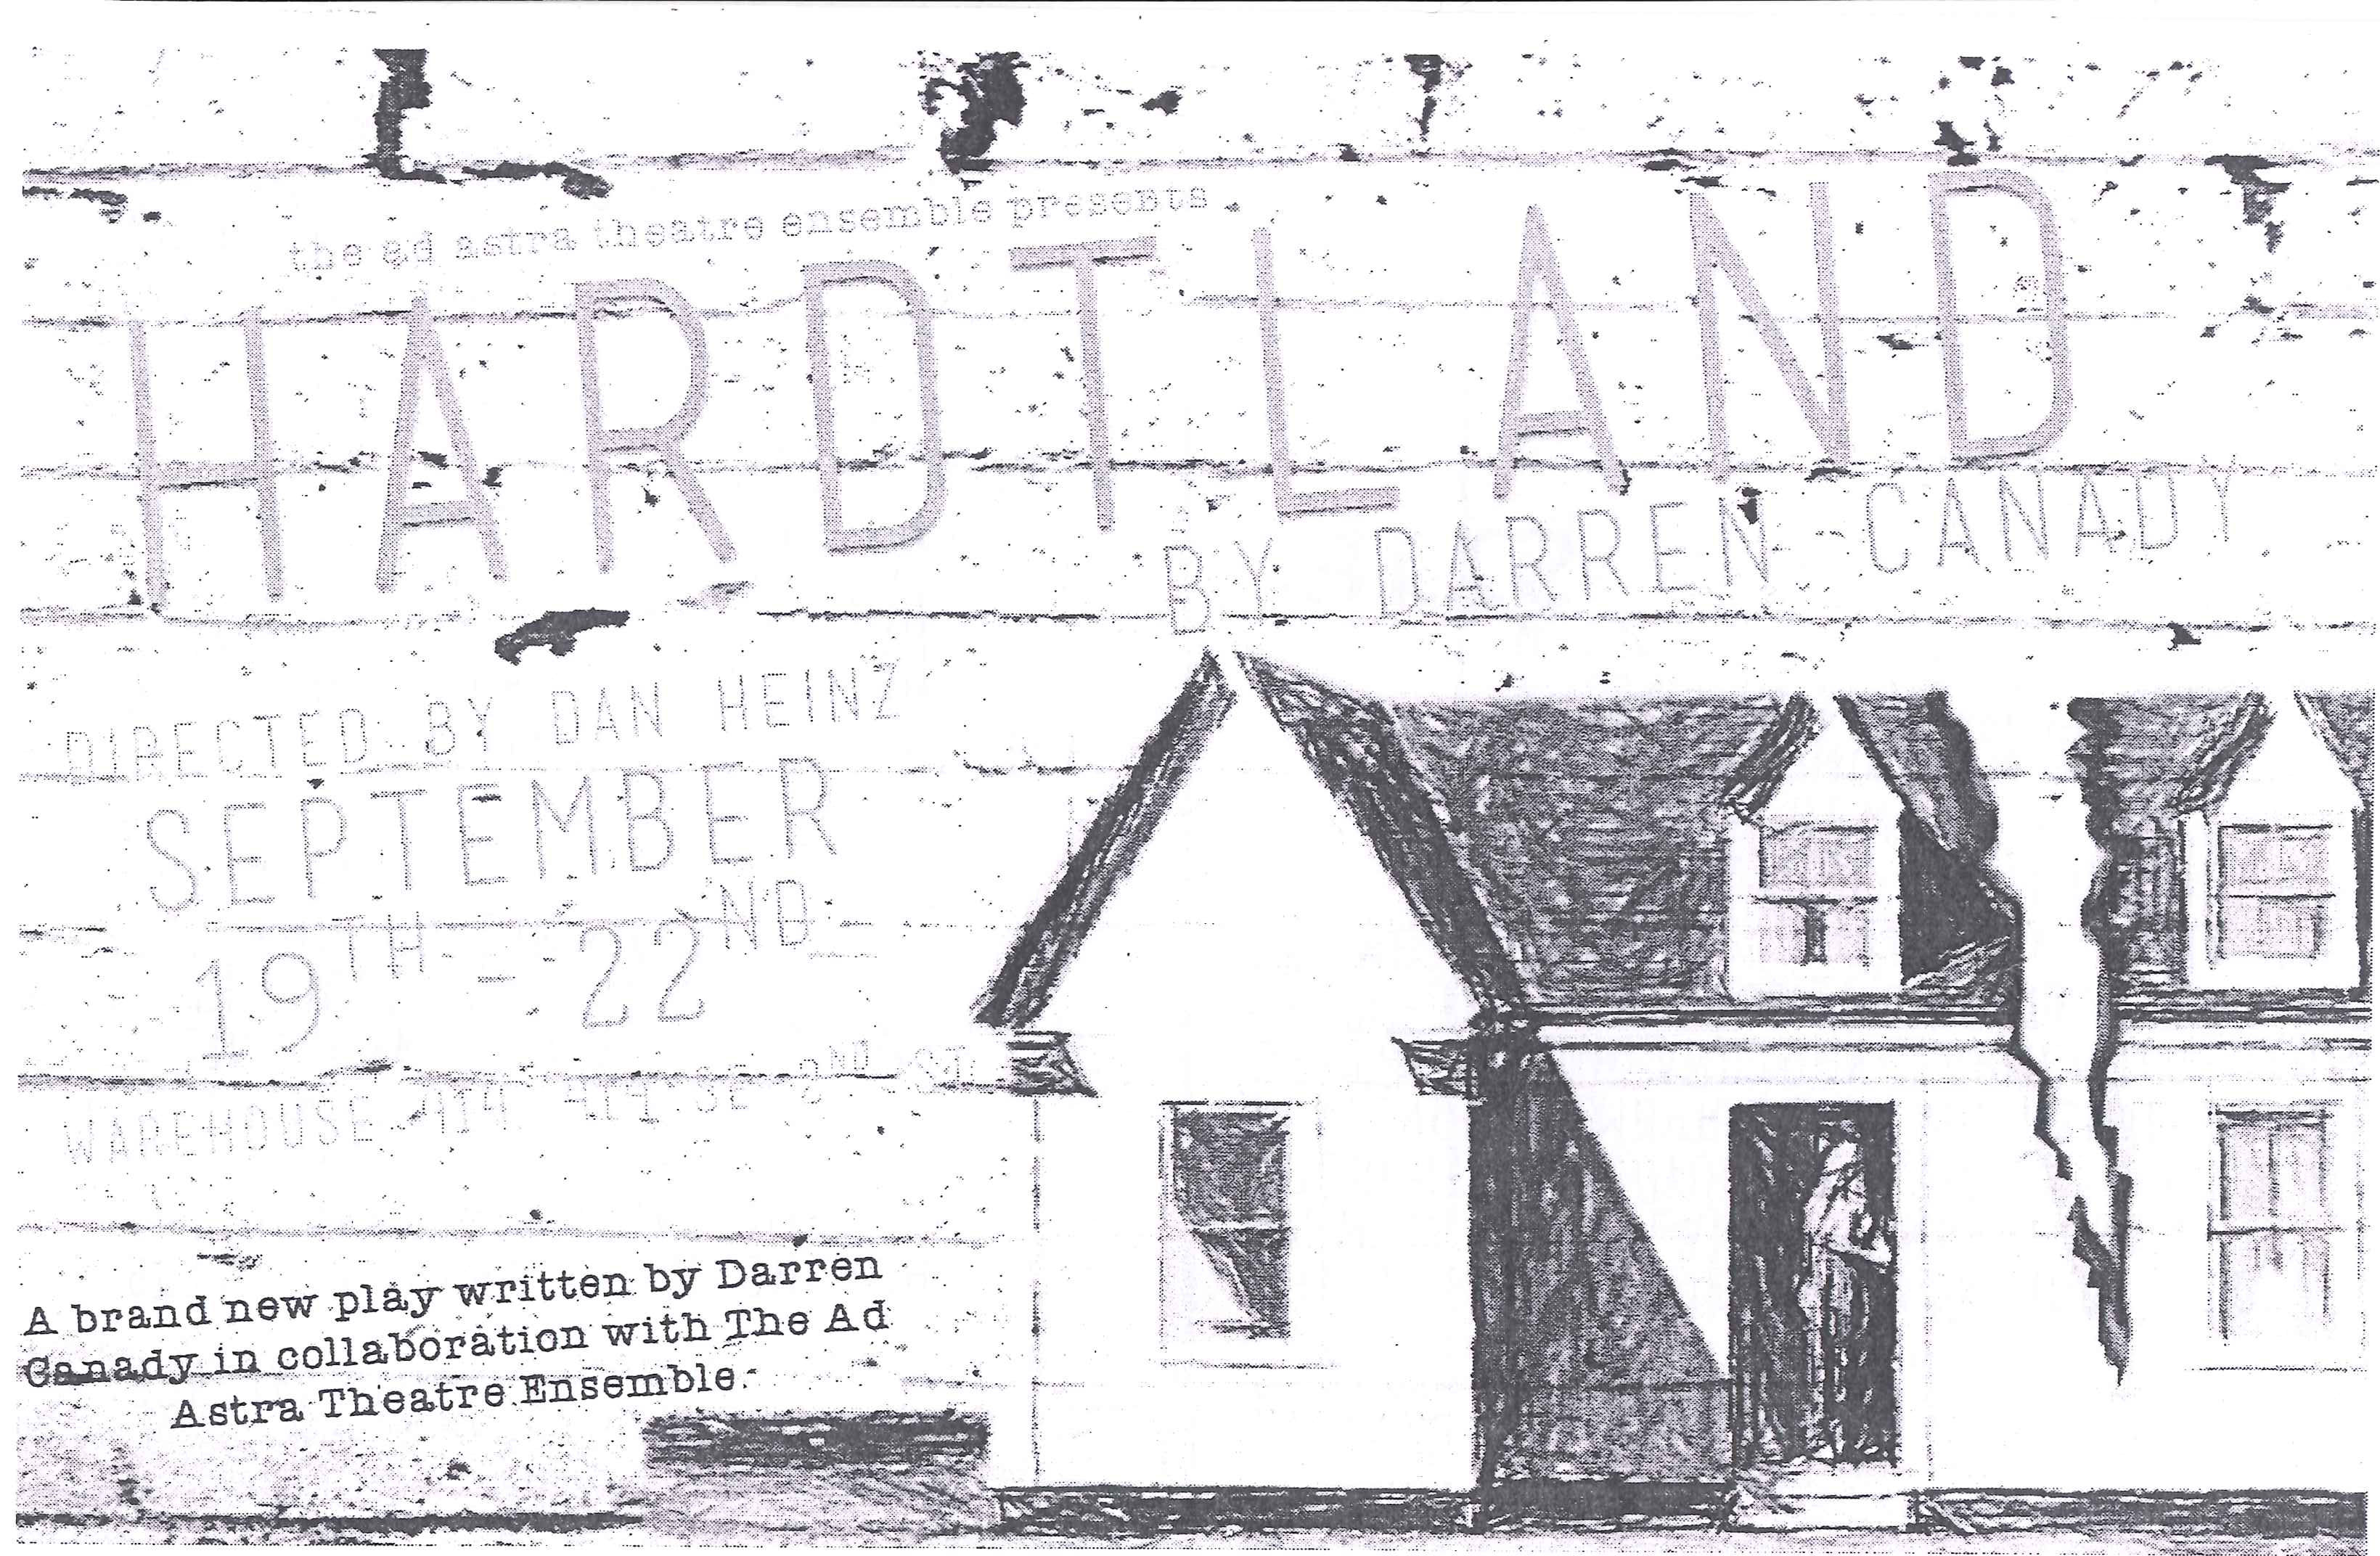 the ad astra theatre ensemble presents
HARDTLAND
BY DARREN CANADY
DIRECTED BY DAN HEINZ
SEPTEMBER
19TH - 22ND
WAREHOUSE 414 414 SE 2ND ST.
A brand new play written by Darren
Canady in collaboration with The Ad
Astra Theatre Ensemble.